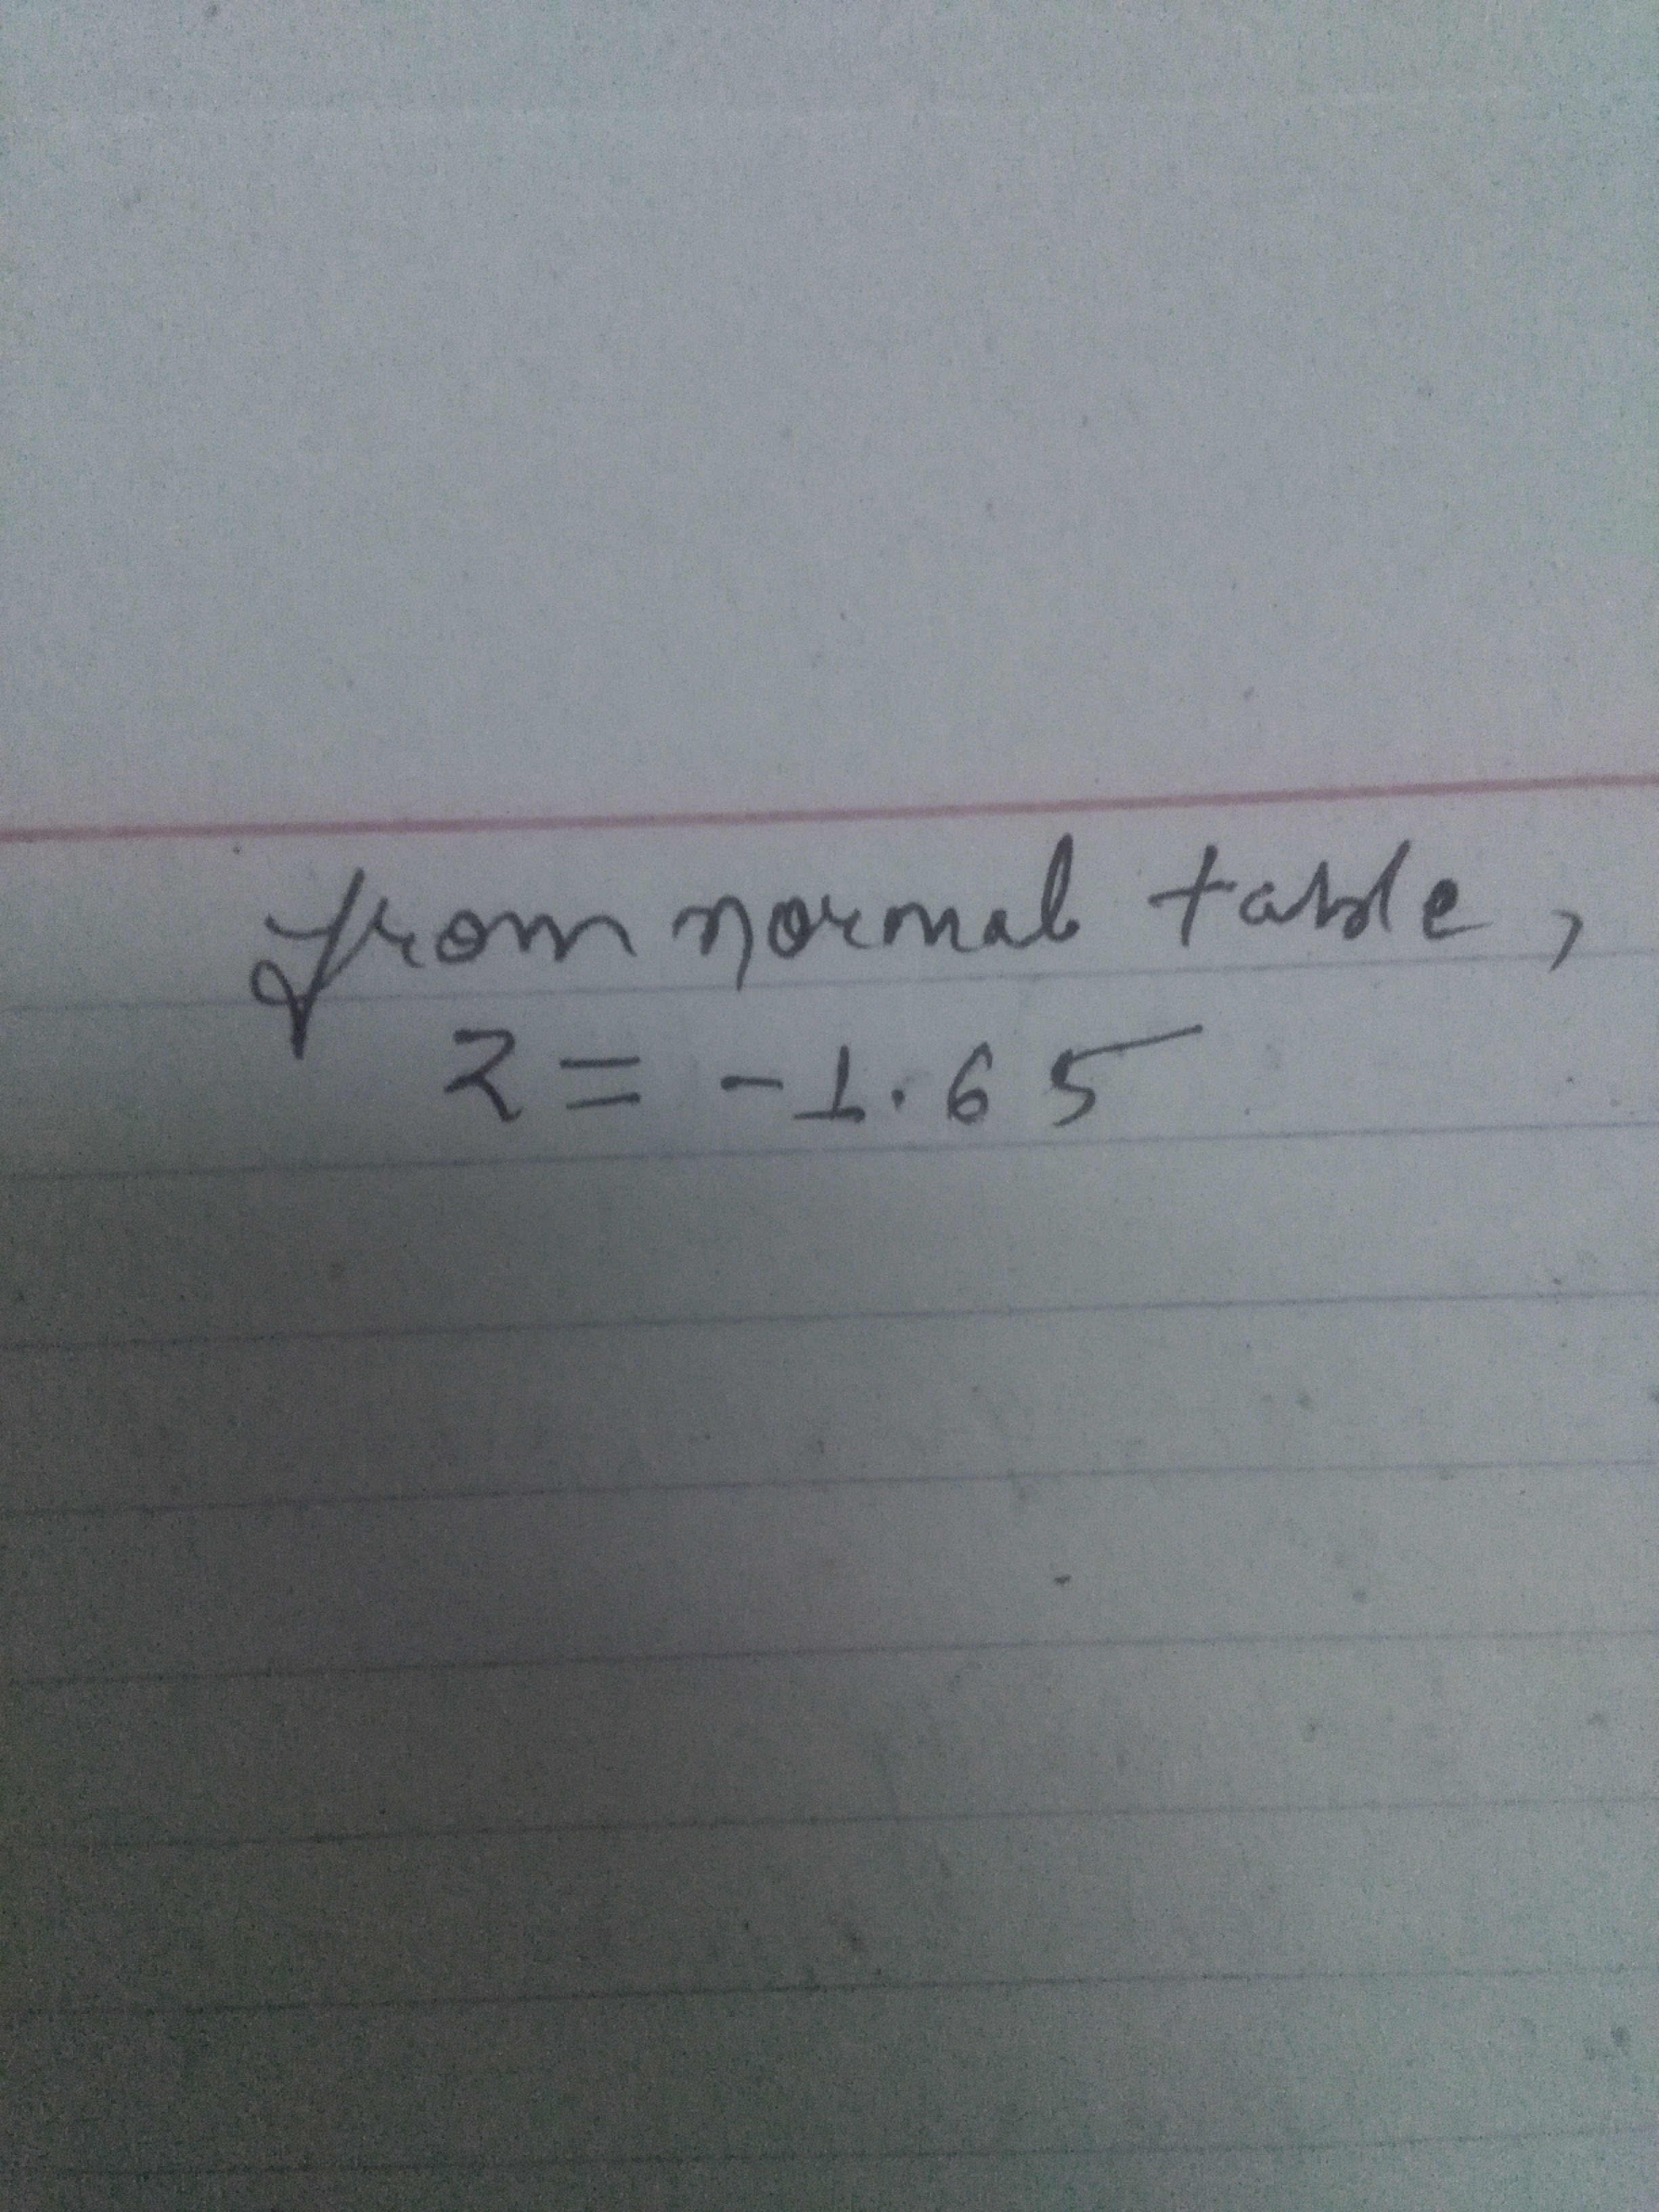 from normal table,
Z = -1.65